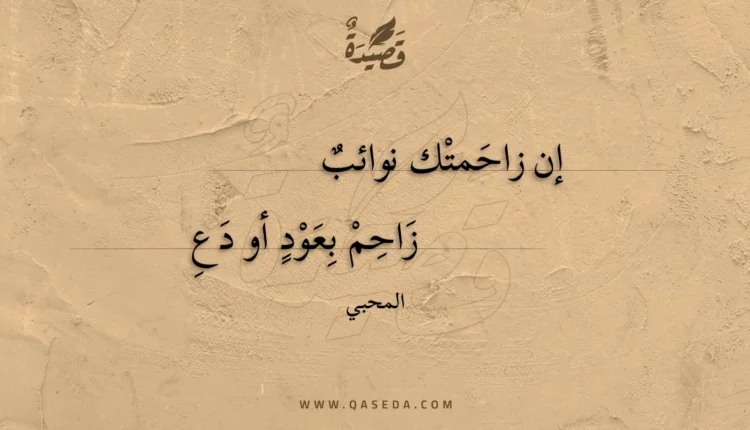 قَصِيدَةٌ
إن زاحَمتْك نوائبٌ
زَاحِمْ بِعَوْدٍ أو دَعِ
المحبي
WWW.QASEDA.COM